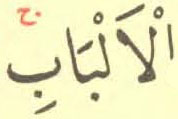 ۚح
الْاَلْبَابِ